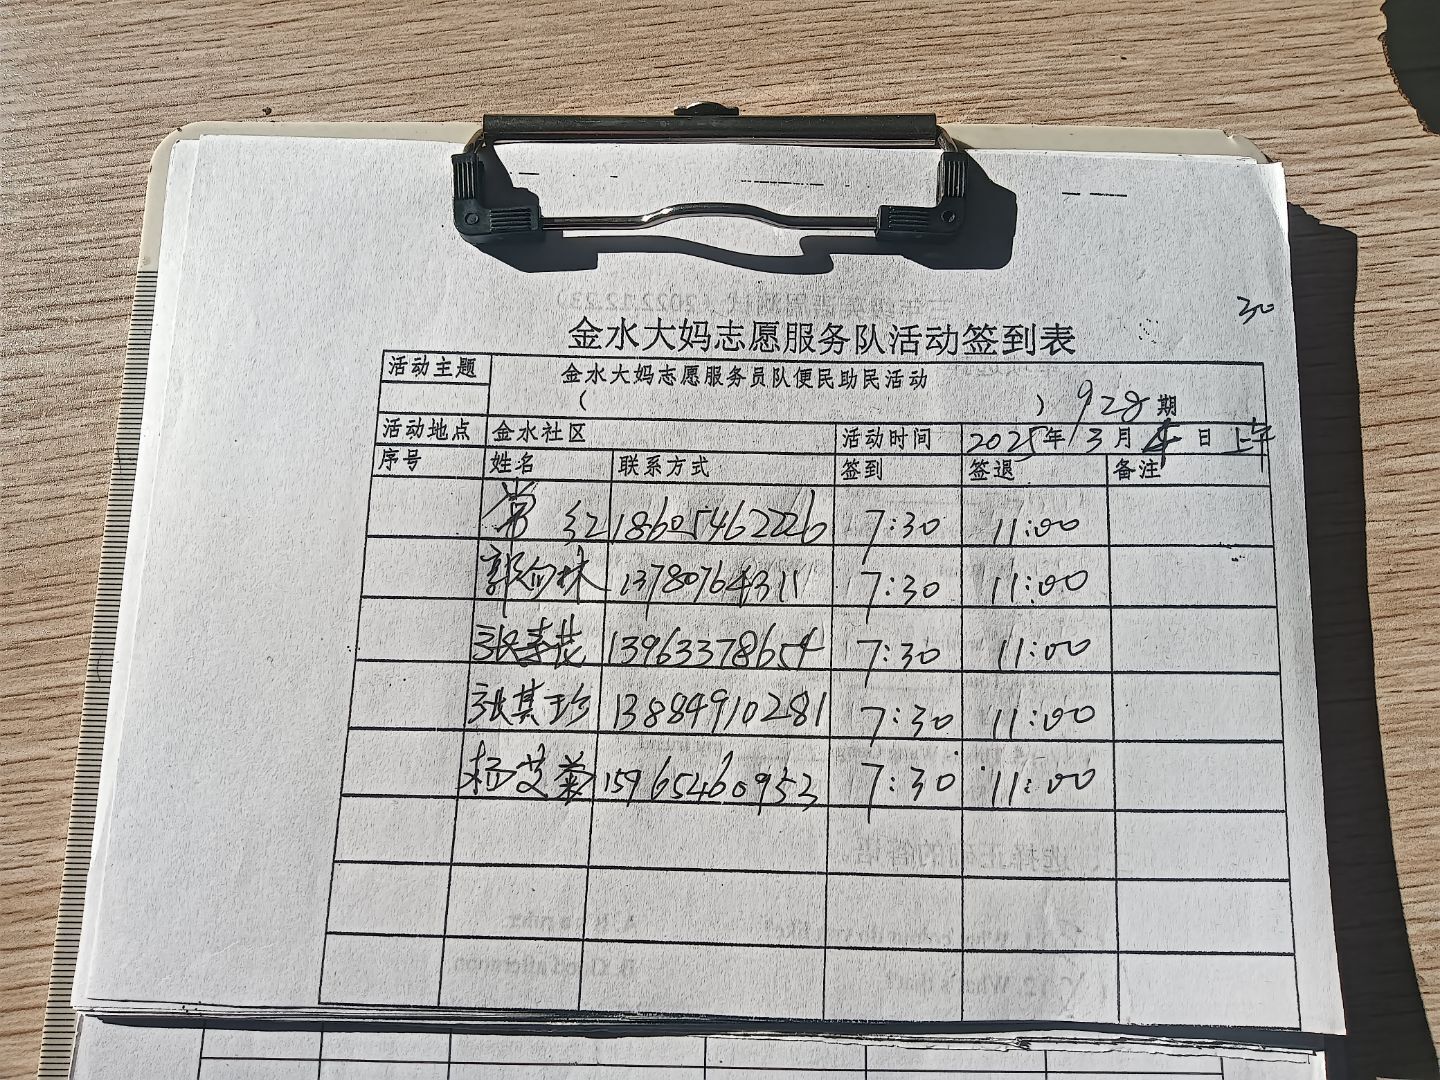 30
金水大妈志愿服务队活动签到表
活动主题 金水大妈志愿服务员队便民助民活动
( ) 928期
活动地点 金水社区 活动时间 2025年3月 日 上午
序号 姓名 联系方式 签到 签退 备注
常红 18605462226 7:30 11:00
郭向林 13780764311 7:30 11:00
张春花 13963378654 7:30 11:00
张其珍 13884910281 7:30 11:00
杨艾菊 15965460953 7:30 11:00